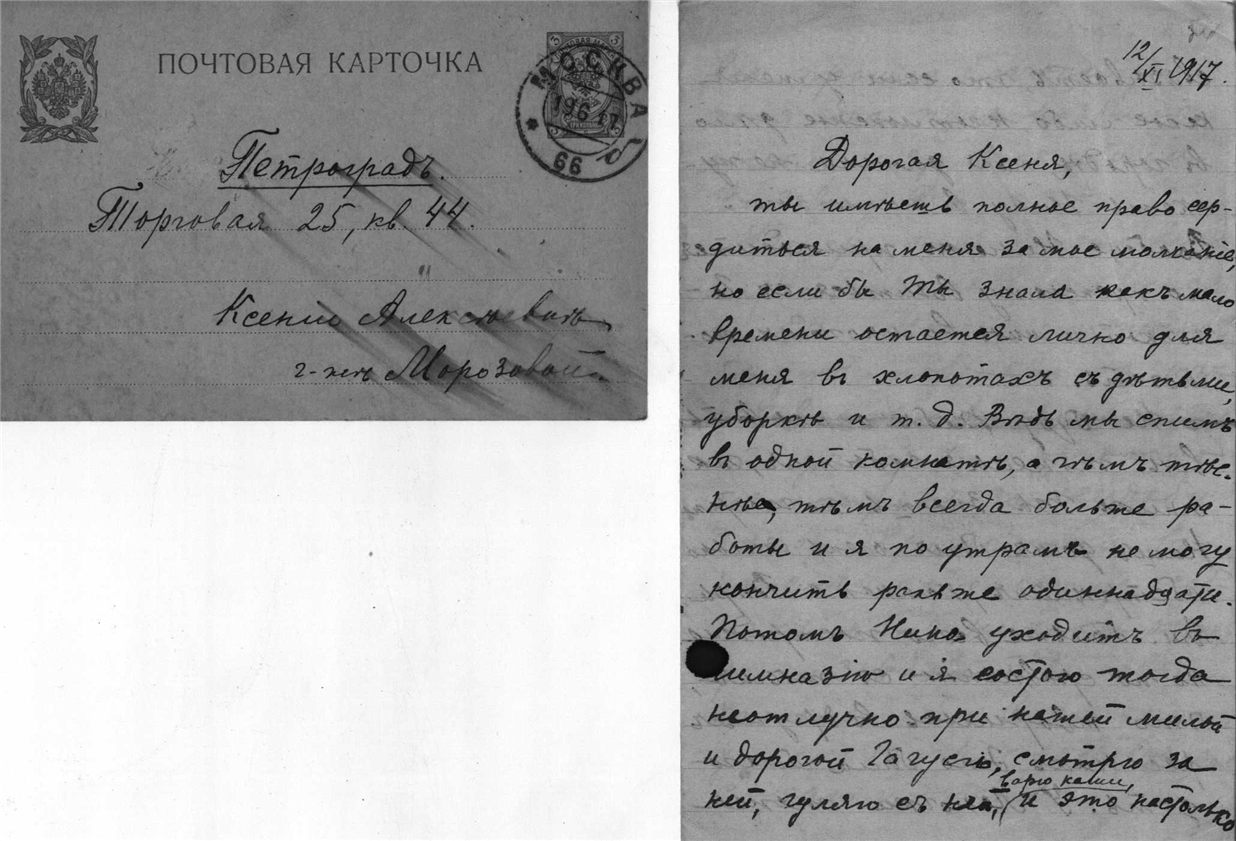 ПОЧТОВАЯ КАРТОЧКА
3 3
МОСКВА
19 6 17
66
Петроградъ.
Торговая 25, кв. 44.
Ксеніи Алексѣевнѣ
г-жѣ Морозовой.
12/XI 1917.
Дорогая Ксеня,
ты имѣешь полное право сер-
диться на меня за мое молчаніе,
но если бы Ты знала какъ мало
времени остается лично для
меня въ хлопотахъ съ дѣтьми,
уборкѣ и т. д. Вѣдь мы спимъ
въ одной комнатѣ, а чѣмъ тѣс-
нѣе, тѣмъ всегда больше ра-
боты и я по утрамъ не могу
кончить раньше одиннадцати.
Потомъ Нина уходитъ въ
гимназію и я состою тогда
неотлучно при нашей милой
и дорогой Гагусѣ, смотрю за
ней, гуляю съ ней, варю каши, и это настолько